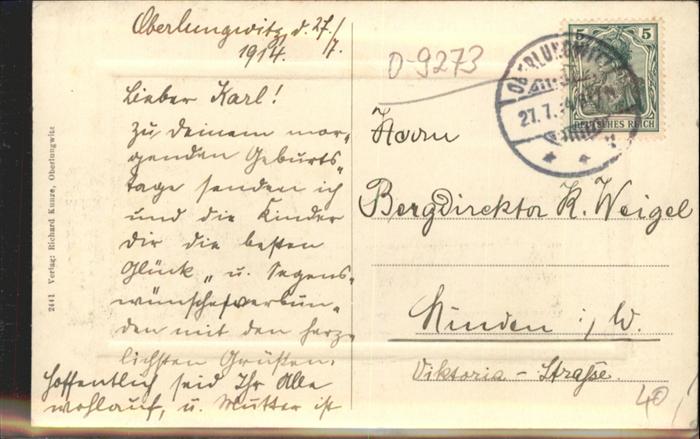 Oberlungwitz d. 27./7.
1914.
Lieber Karl!
Zu deinem mor-
genden Geburts-
tage senden ich
und die Kinder
dir die besten
Glück- u. Segens-
wünsche verbun-
den mit den herz-
lichsten Grüßen.
Hoffentlich seid Ihr Alle
wohlauf, u. Mutter ist
D-9273
OBERLUNGWITZ
27.7.14
5 5
DEUTSCHES REICH
Herrn
Bergdirektor K. Weigel
Minden i/W.
Viktoria-Strasse.
40
2441 Verlag: Richard Kunze, Oberlungwitz